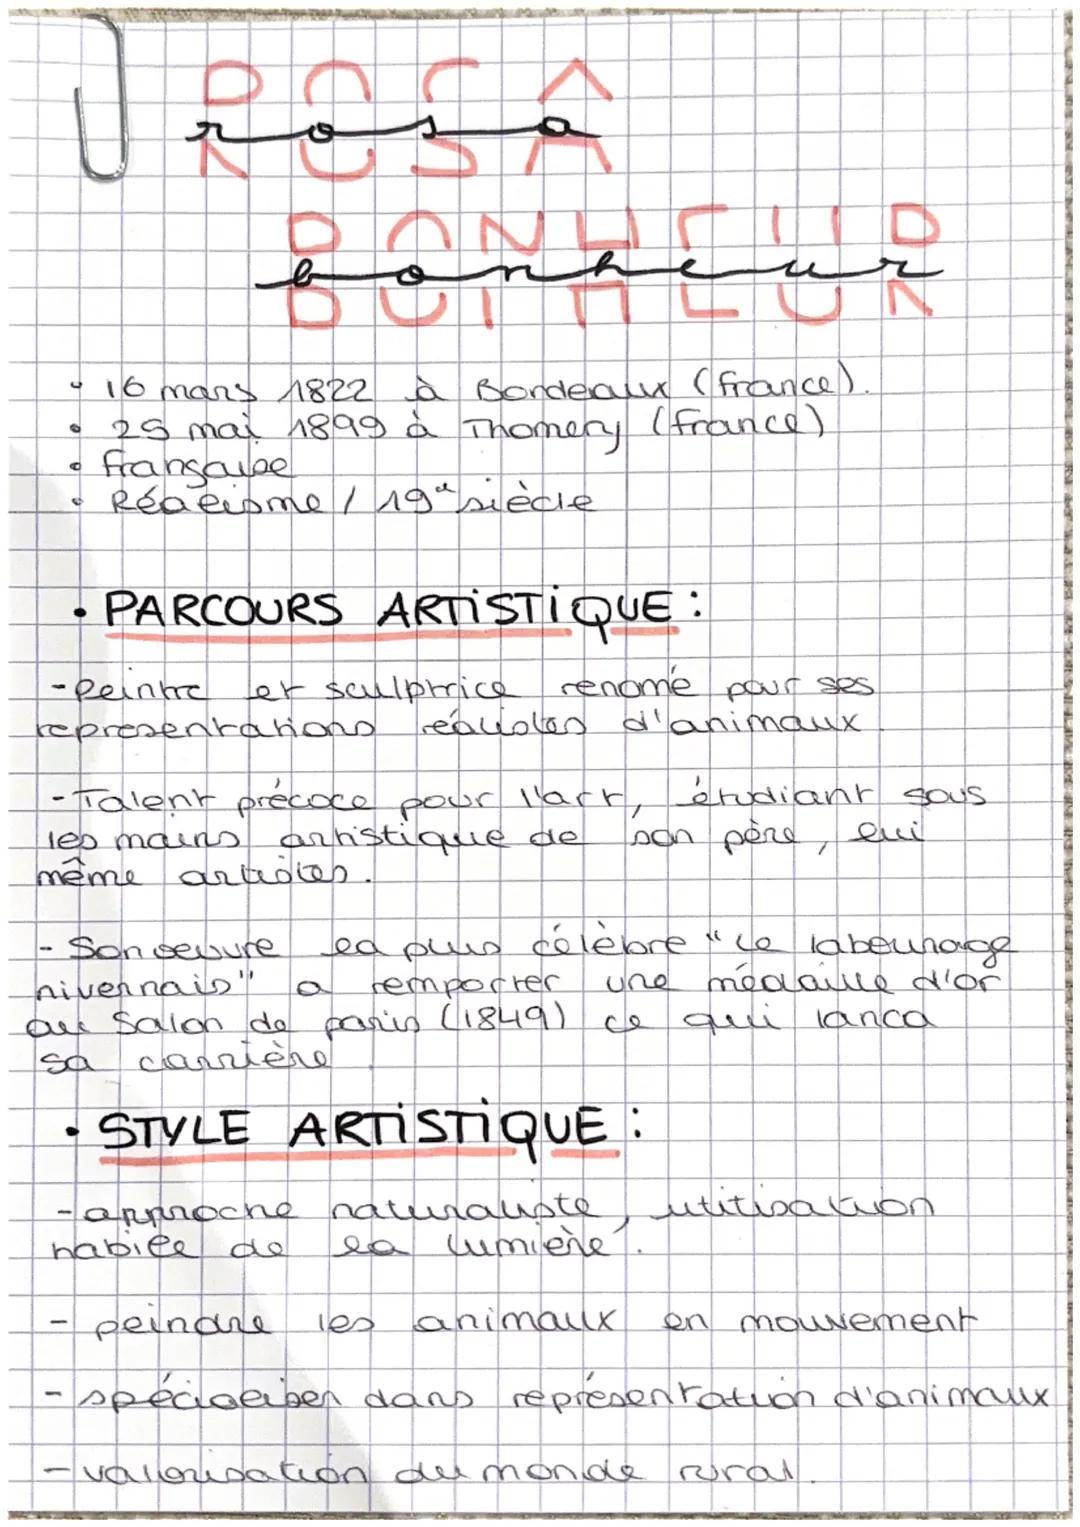 ROSA
rosa
BONHEUR
bonheur
• 16 mars 1822 à Bordeaux (france).
• 25 mai 1899 à Thomery (france)
• française
• Réalisme / 19e siècle
• PARCOURS ARTISTIQUE :
- Peintre et sculptrice renomé pour ses
representations réalistes d'animaux.
- Talent précoce pour l'art, étudiant sous
les mains artistique de son père, lui
même artistes.
- Son oeuvre la plus célèbre "Le labourage
nivernais" a remporter une médaille d'or
au Salon de paris (1849) ce qui lanca
sa carrière.
• STYLE ARTISTIQUE :
- approche naturaliste, utitisation
habile de la lumière.
- peindre les animaux en mouvement
- spécialiser dans représentation d'animaux
- valorisation du monde rural.